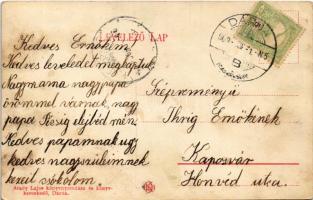 LEVELEZŐ LAP
Kedves Ernőkém
Kedves leveledet megkaptuk.
Nagymama nagypapa
örömmel várnak, nagy
papa Pécsig elejbéd mén.
Kedves papamnak ugy
kedves nagyszüleimnek
kezeit csókolom.
Szépreményű
Ihrig Ernőkének
Kaposvár
Honvéd utca.
Arady Lajos könyvnyomdász és könyv-
kereskedő, Dárda.
DÁRDA
B